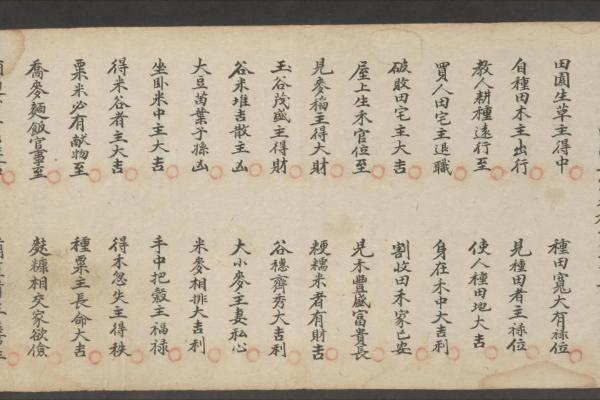 田園生草主得中 種田寬大有祿位
自種田禾主出行 見種田者主祿位
教人耕種遠行至 使人種田地大吉
買人田宅主退職 身在禾中大吉利
破敗田宅主大吉 割收田禾家已安
屋上生禾官位至 見禾豐盛富貴長
見麥稻主得大財 粳糯米者有財吉
五谷茂盛主得財 谷穗齊秀大吉利
谷米堆吉散主凶 大小麥主妻私心
大豆苗葉子孫凶 米麥相排大吉利
坐卧米中主大吉 手中把穀主福祿
得米谷者主大吉 得禾忽失主得秩
粟米必有献物至 種粟主長命大吉
喬麥麵飯官事至 麩糠相交家欲儉